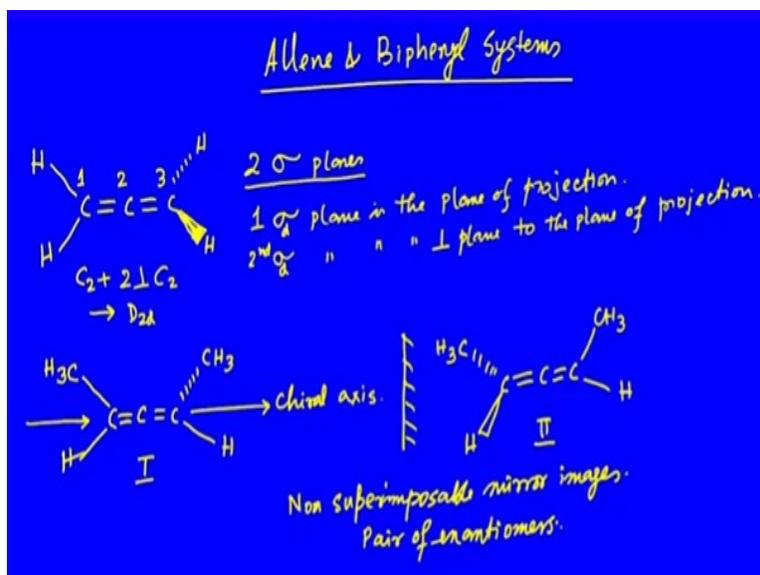 Allene & Biphenyl Systems
H H
1 2 3
C=C=C
H H
C₂+ 2⊥C₂
→ D₂d
2 σ planes
1 σd plane in the plane of projection.
2nd σd " " " ⊥ plane to the plane of projection.
H₃C CH₃
C=C=C → Chiral axis.
H H
I
H₃C CH₃
C=C=C
H H
II
Non superimposable mirror images.
Pair of enantiomers.